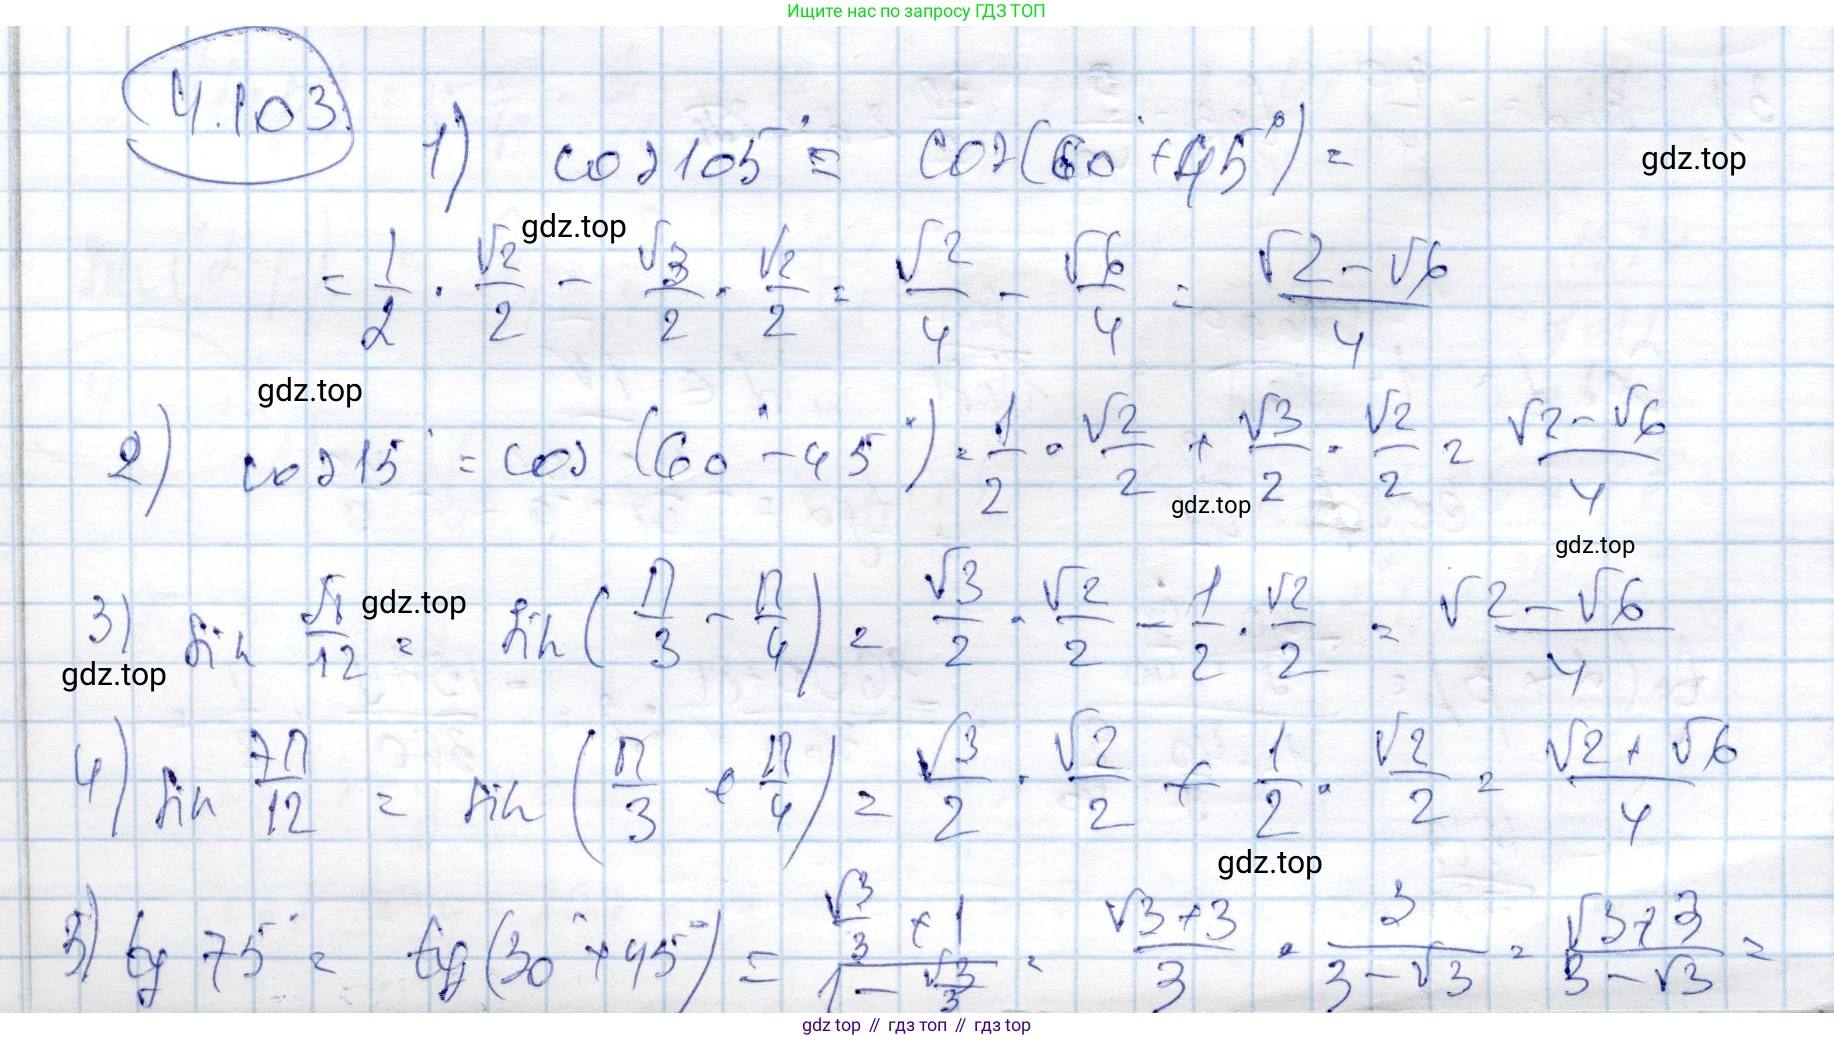 Ищите нас по запросу ГДЗ ТОП
4.103.
1) cos 105° = cos(60° + 45°) =
gdz.top
gdz.top
= 1/2 · √2/2 − √3/2 · √2/2 = √2/4 − √6/4 = (√2 − √6)/4
gdz.top
2) cos 15° = cos (60° − 45°) = 1/2 · √2/2 + √3/2 · √2/2 = (√2 − √6)/4
gdz.top
gdz.top
3) sin π/12 = sin (π/3 − π/4) = √3/2 · √2/2 − 1/2 · √2/2 = (√2 − √6)/4
gdz.top
gdz.top
4) sin 7π/12 = sin (π/3 + π/4) = √3/2 · √2/2 + 1/2 · √2/2 = (√2 + √6)/4
gdz.top
5) tg 75° = tg(30° + 45°) = (√3/3 + 1)/(1 − √3/3) = (√3+3)/3 · 3/(3−√3) = (√3+3)/(3−√3) =
gdz top // гдз топ // gdz top